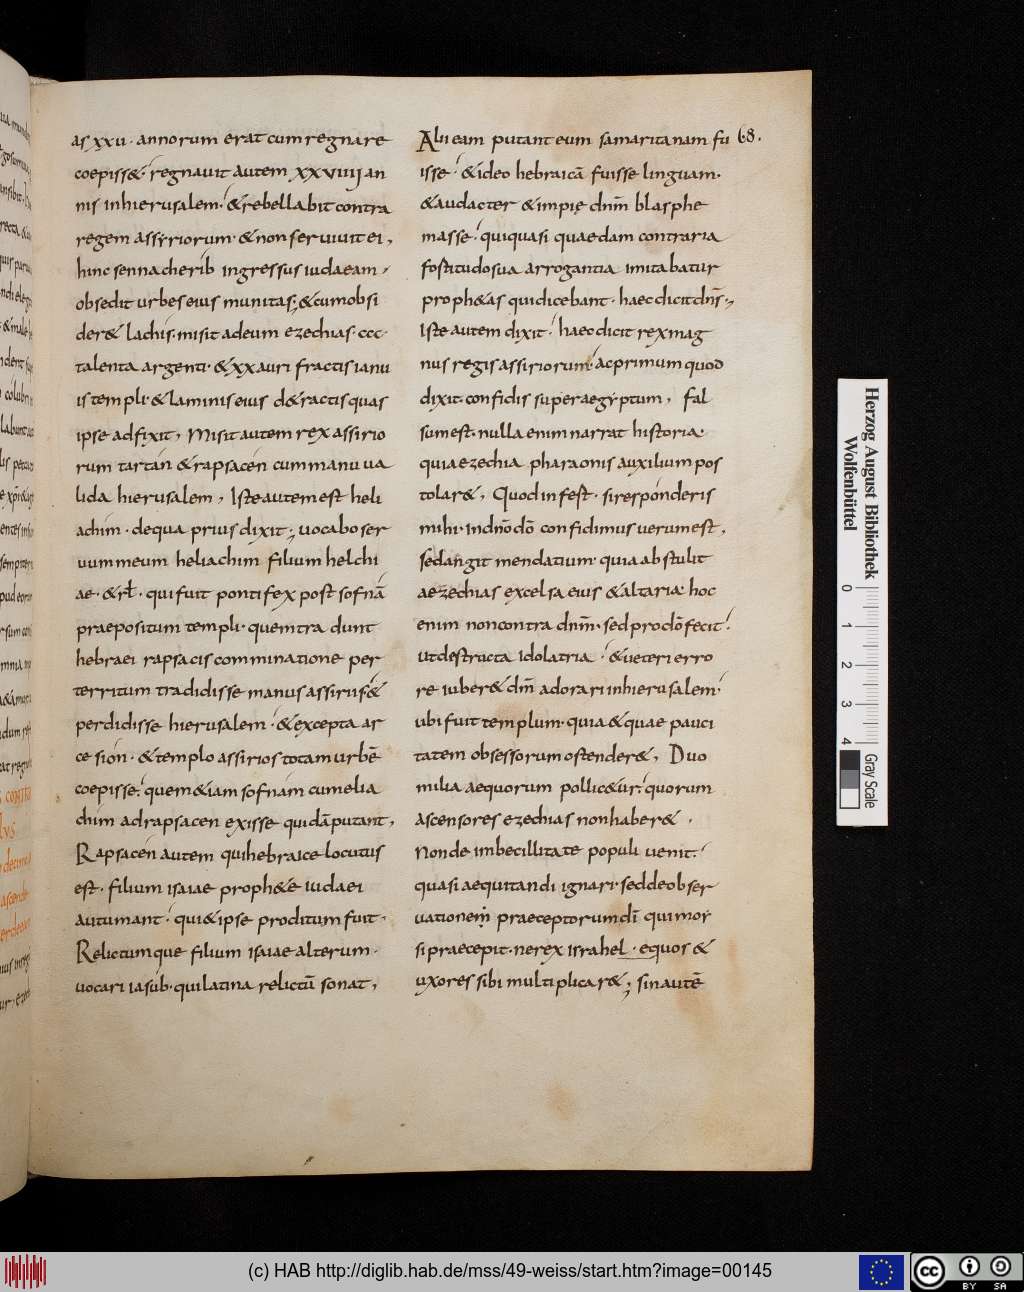 as xxu · annorum erat cum regnare
coepiss&· regnauit autem xxviiij an
nis in hierusalem · & rebellabit contra
regem assyriorum · & non seruiuit ei,
hinc sennacherib ingressus iudaeam ·
obsedit urbes eius munitas; & cum obsi
der& lachis · misit ad eum ezechias · ccc ·
talenta argenti · & xx auri fractis ianu
is templi · & laminis eius d&ractis quas
ipse adfixit, Misit autem rex assirio
rum tartan & rapsacen cum manu ua
lida hierusalem, Iste autem est heli
achim · de qua prius dixit; uocabo ser
uum meum heliachim filium helchi
ae · & rł · qui fuit pontifex post sofnā
praepositum templi · quem tradunt
hebraei rapsacis comminatione per
territum tradidisse manus assirii s&
perdidisse hierusalem · & excepta ar
ce sion · & templo assirios totam urbē
coepisse · quem &iam sofnam cum elia
chim ad rapsacen exisse quidā putant,
Rapsacen autem qui hebraice locutus
est · filium isaiae proph&ę iudaei
autumant · qui & ipse proditum fuit ·
Relictumque filium isaiae alterum ·
uocari iasub · qui latina relictū sonat,
Alii eam putant eum samaritanam fu
68.
isse · & ideo hebraicā fuisse linguam ·
& audacter & impię dn̄m blasphe
masse · qui quasi quaedam contraria
fortitudo sua arrogantia imitabatur
proph&as qui dicebant · haec dicit dn̄s ·,
Iste autem dixit · haec dicit rex mag
nus regis assiriorum · ac primum quod
dixit · confidis super aegyptum, fal
sum est · nulla enim narrat historia ·
quia ezechia pharaonis auxilium pos
tolar&, Quod infest · si responderis
mihi · in dn̄o dō confidimus uerum est,
sed angit mendatium · quia abstulit
aezechias excelsa eius & altaria · hoc
enim non contra dn̄m · sed pro dō fecit ·
ut destructa idolatria · & ueteri erro
re iuber& dm̄ adorari in hierusalem ·
ubi fuit templum · quia & quae pauci
tatem obsessorum ostender&, Duo
milia aequorum pollic&ur · quorum
ascensores ezechias non haber& ·
Non de imbecillitate populi uenit ·
quasi aequitandi ignari · sed de obser
uationem praeceptorum dī qui moy
si praecepit · ne rex israhel · equos &
uxores sibi multiplicar&; sin autē
Herzog August Bibliothek
Wolfenbüttel
0 1 2 3 4
Gray Scale
(c) HAB http://diglib.hab.de/mss/49-weiss/start.htm?image=00145
cc BY SA